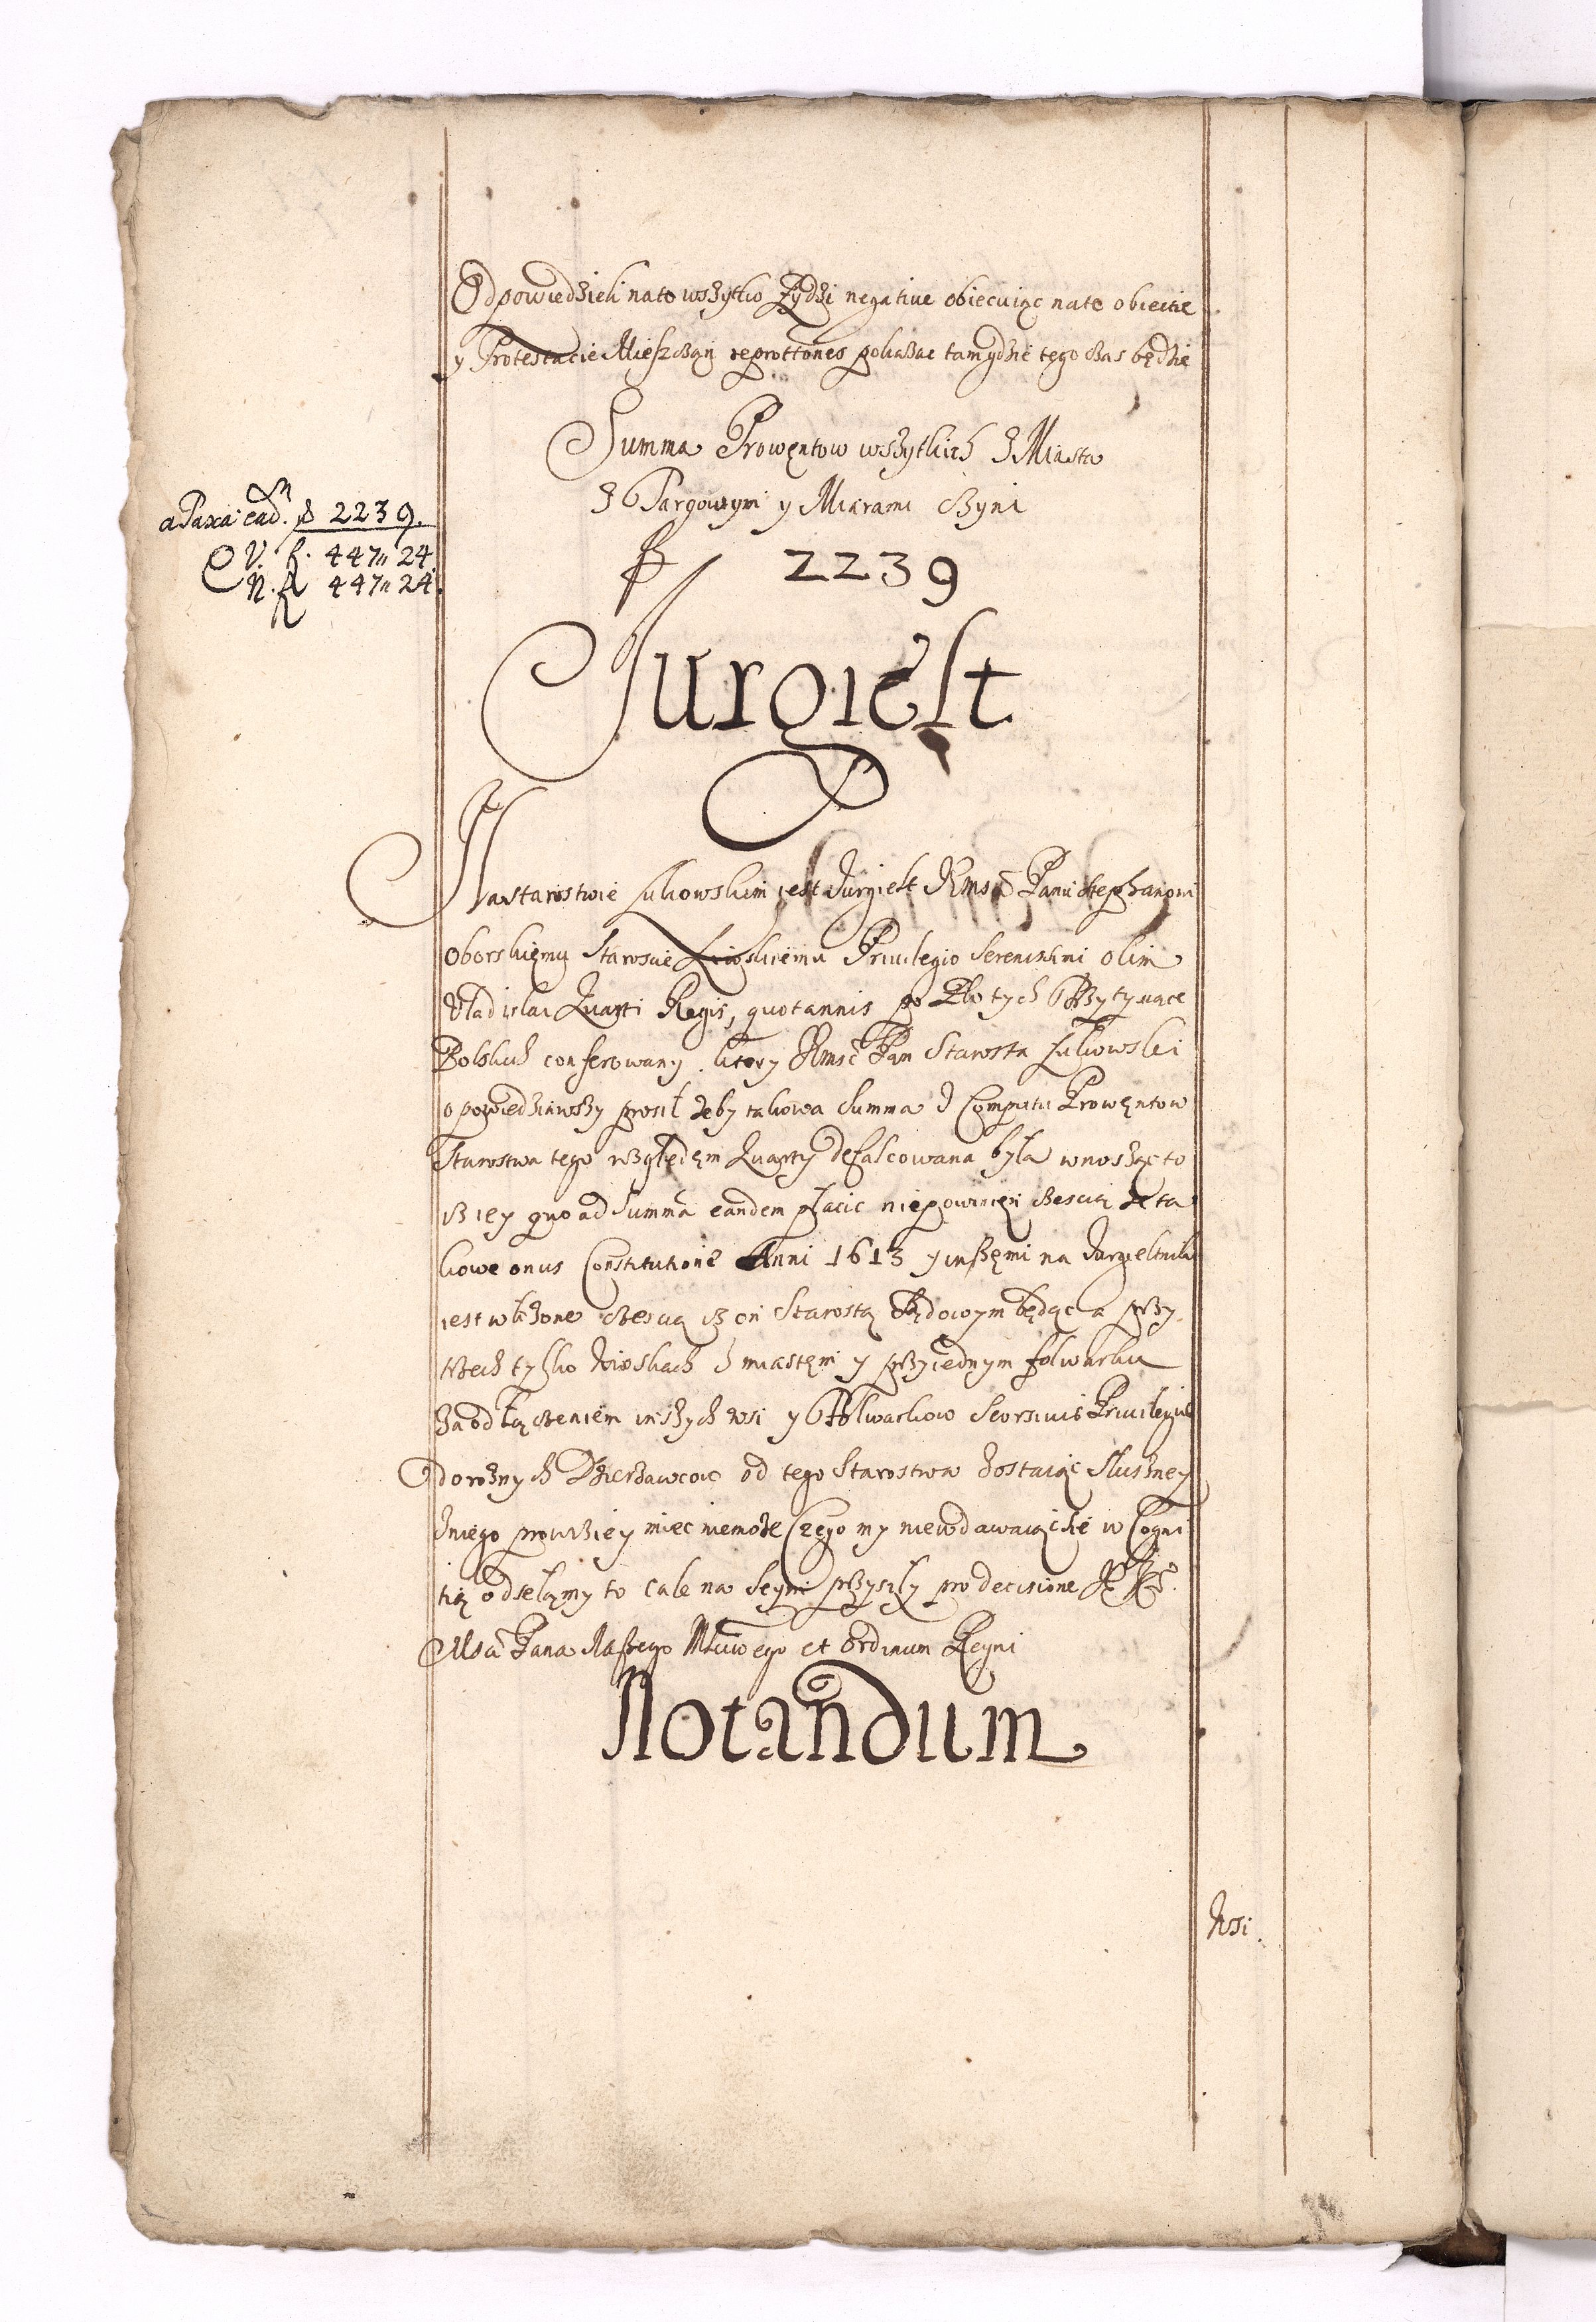 Odpowiedzieli nato wszytko Zydzi negatiue obiecuiąc nate obiectie
y Protestacie Mieszczan reprottones pokazac tam gdzie tego czas będzie
Summa Prowentow wszytkich z Miasta
z Targowym y Miarami czyni
fl 2239
a Taxa ead. fl 2239.
V. f. 447 24
N. fl 447 24.
Jurgielt
Na Starostwie Lukowskim iest Jurgielt Jmsci Panu Stephanowi
Oborskiemu Staroscie Liwskiemu Priuilegio Serenissimi olim
Vladislai Quarti Regis, quotannis po Złotych Tysiące
Polskich conferowany. ktory Jmsc Pan Starosta Lukowski
opowiedziawszy prosił zeby takowa Summa z Computu Prowentow
Starostwa tego względem Quarty defalcowana była wnosząc to
iz iey quo ad Summa eandem płacic niepowinien czescią ze ta
kowe onus Constitutione Anni 1613 y inszemi na Jurgieltnika
iest włozone czescią iz on Starostą Sądowym będąc a przy
trzech tylko Wioskach z miastem y przy iednym folwarku
za odłączeniem inszych wsi y Folwarkow Seorsiuis Priuilegiis
do roznych Dzierzawcow od tego Starostwa zostaiąc Słuszney
z niego prowiziey miec niemoze Czego my niewdawaiąc się w Cogni
tią odsełamy to cale na Seym przyszły pro decisione J K
Msci Pana Naszego Mciwego et Ordinum Regni
Notandum
Wsi